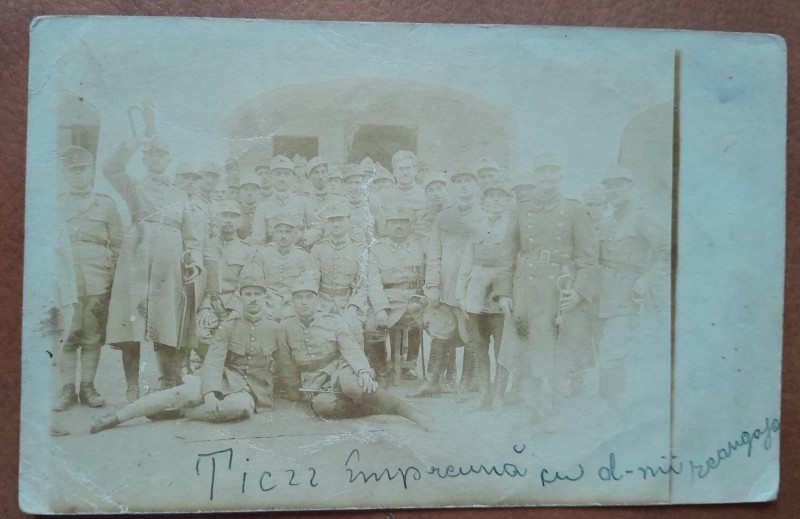 Ticzz împreună cu d-nii reangaja